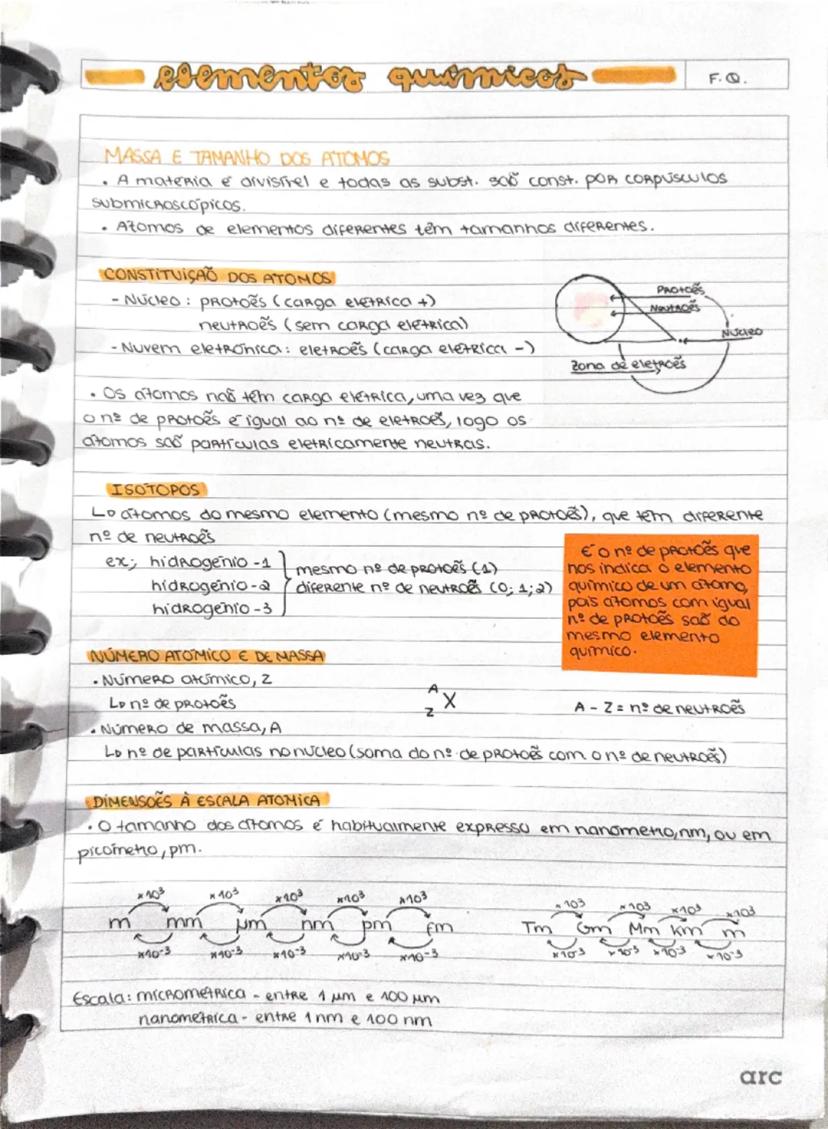 elementos químicos
F.Q.
MASSA E TAMANHO DOS ÁTOMOS
• A matéria é divisível e todas as subst. são const. por corpúsculos
submicroscópicos.
• Átomos de elementos diferentes têm tamanhos diferentes.
CONSTITUIÇÃO DOS ÁTOMOS
- Núcleo: protões (carga elétrica +)
neutrões (sem carga elétrica)
- Nuvem eletrónica: eletrões (carga elétrica -)
Protões
Neutrões
Núcleo
Zona de eletrões
• Os átomos não têm carga elétrica, uma vez que
o nº de protões é igual ao nº de eletrões, logo os
átomos são partículas eletricamente neutras.
ISÓTOPOS
↳ átomos do mesmo elemento (mesmo nº de protões), que têm diferente
nº de neutrões
ex; hidrogénio-1
hidrogénio-2
hidrogénio-3
mesmo nº de protões (1)
diferente nº de neutrões (0; 1; 2)
É o nº de protões que
nos indica o elemento
químico de um átomo,
pois átomos com igual
nº de protões são do
mesmo elemento
químico.
NÚMERO ATÓMICO E DE MASSA
• Número atómico, Z
↳ nº de protões
A
Z X
A - Z = nº de neutrões
• Número de massa, A
↳ nº de partículas no núcleo (soma do nº de protões com o nº de neutrões)
DIMENSÕES À ESCALA ATÓMICA
• O tamanho dos átomos é habitualmente expresso em nanómetro, nm, ou em
picómetro, pm.
×10³ ×10³ ×10³ ×10³ ×10³
m mm μm nm pm fm
×10⁻³ ×10⁻³ ×10⁻³ ×10⁻³ ×10⁻³
×10³ ×10³ ×10³ ×10³
Tm Gm Mm km m
×10⁻³ ×10⁻³ ×10⁻³ ×10⁻³
Escala: micrométrica - entre 1 μm e 100 μm
nanométrica - entre 1 nm e 100 nm
arc